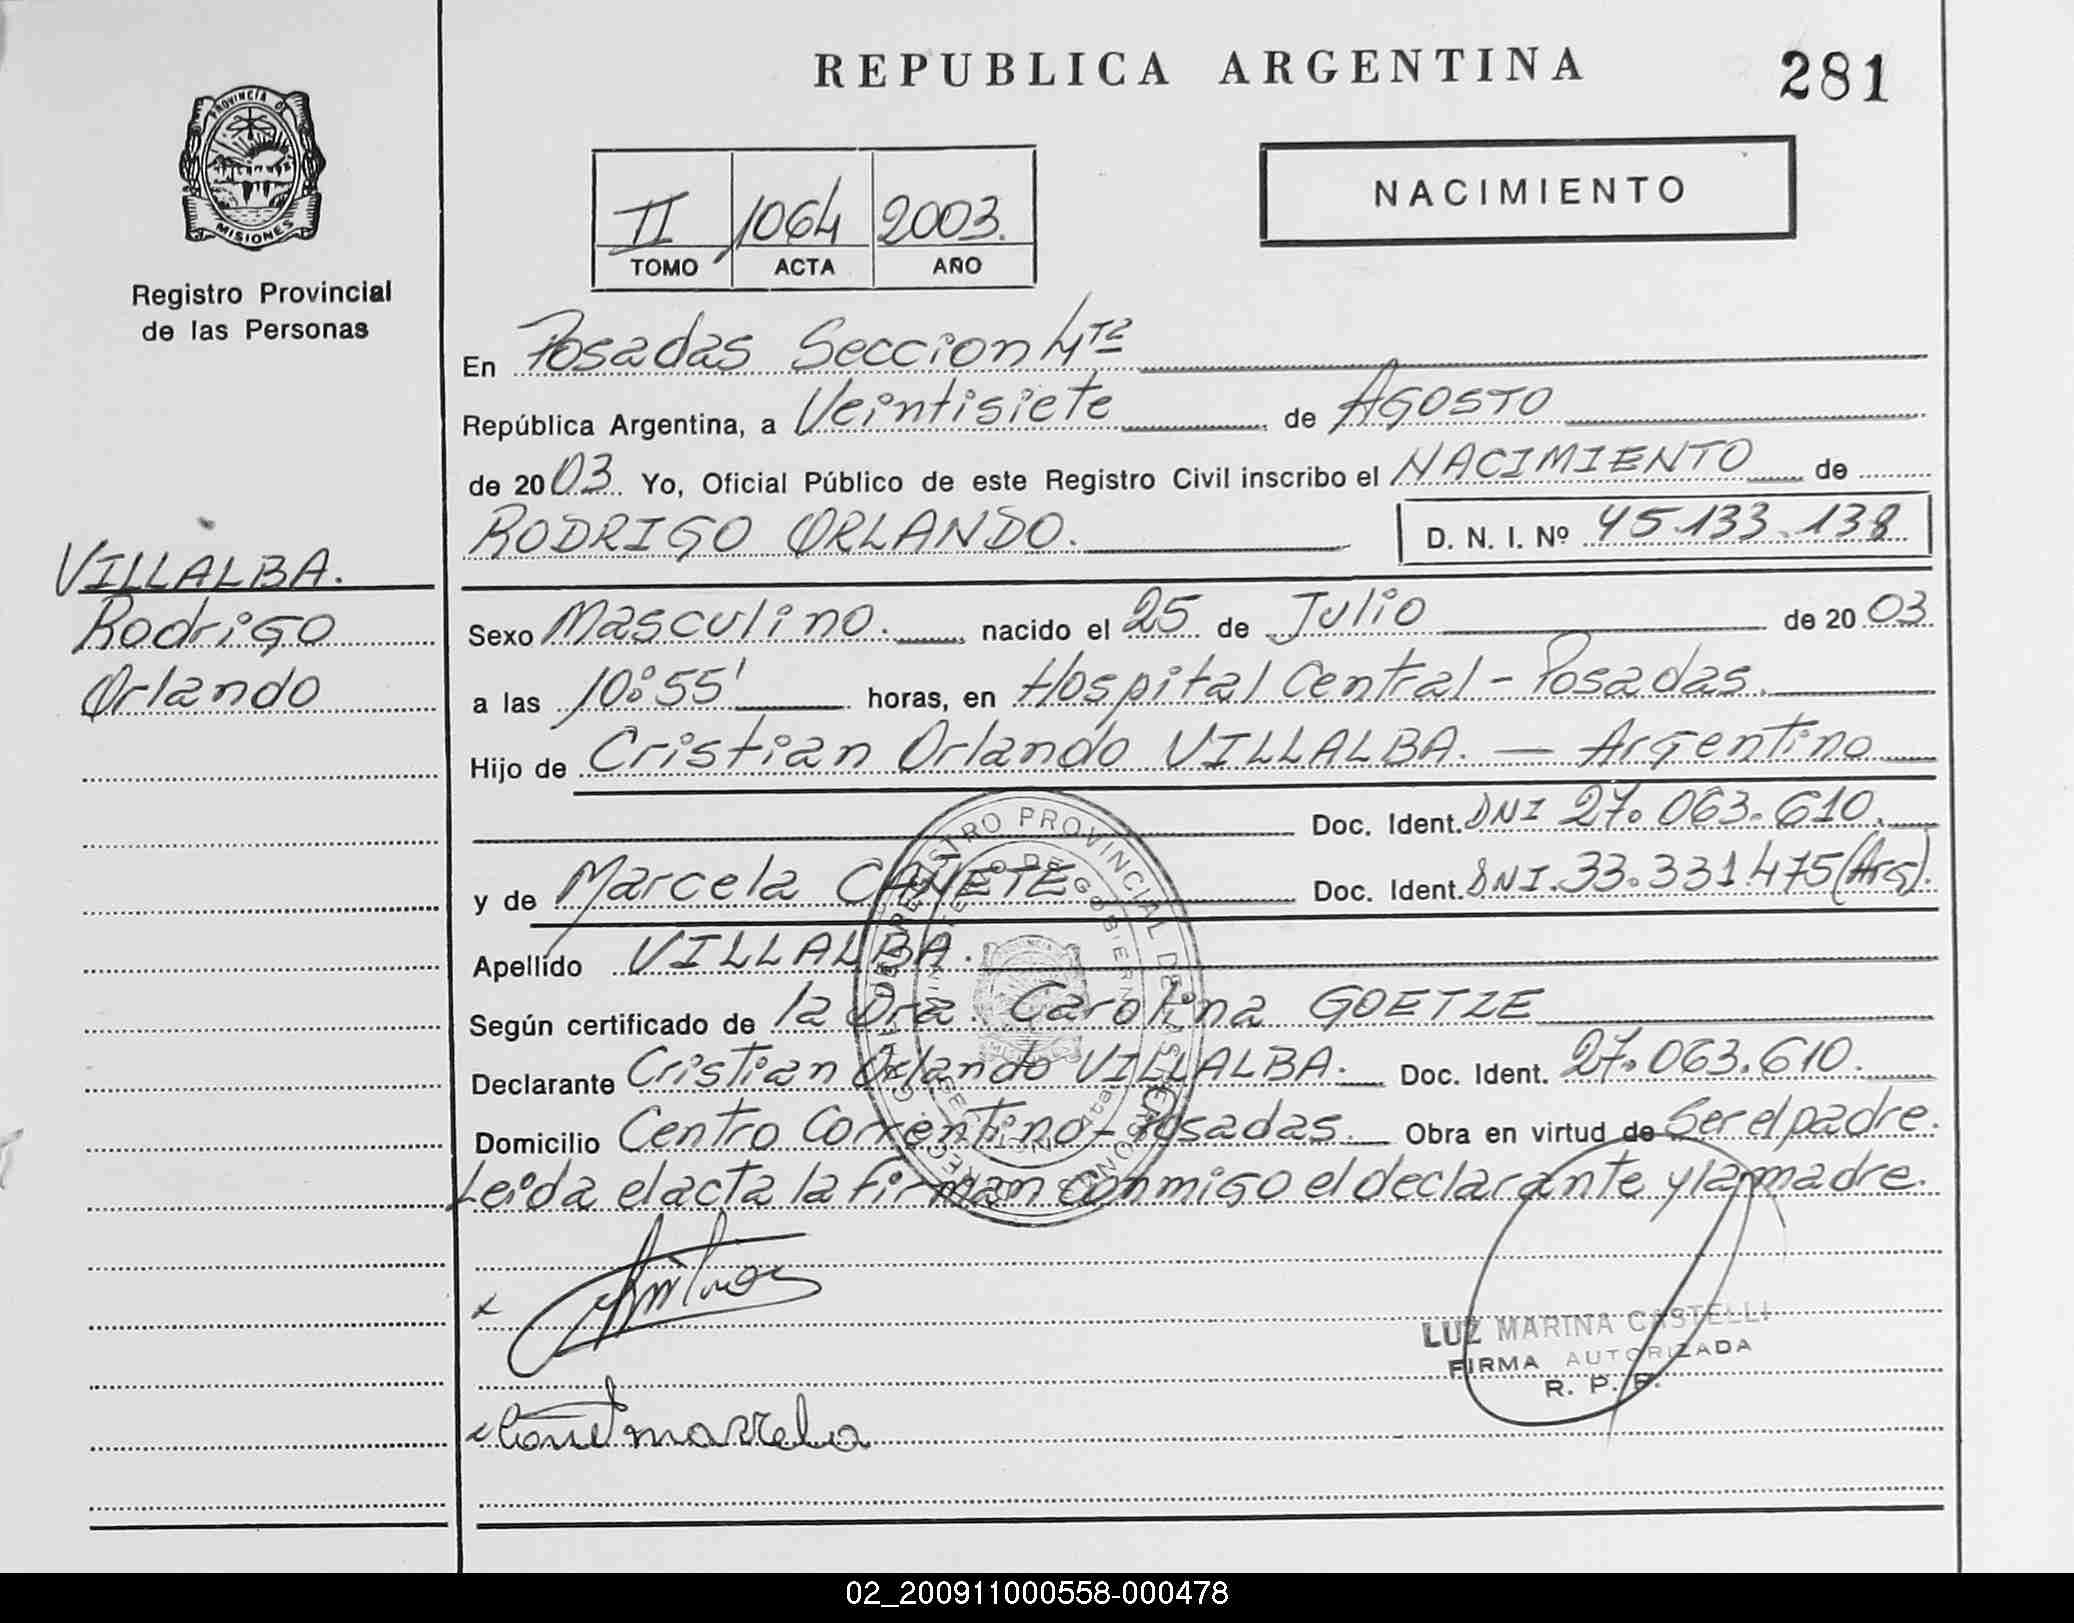 REPUBLICA ARGENTINA
281
PROVINCIA DE
MISIONES
Registro Provincial
de las Personas
NACIMIENTO
II 1064 2003.
TOMO ACTA AÑO
En Posadas Seccion 4ta
República Argentina, a Veintisiete de Agosto
de 2003. Yo, Oficial Público de este Registro Civil inscribo el NACIMIENTO de
RODRIGO ORLANDO. D. N. I. Nº 45.133.138
VILLALBA.
Rodrigo
Orlando
Sexo Masculino. nacido el 25 de Julio de 2003
a las 10:55' horas, en Hospital Central - Posadas.
Hijo de Cristian Orlando VILLALBA. — Argentino
Doc. Ident. DNI 27.063.610.
y de Marcela CAÑETE Doc. Ident. DNI. 33.331.475 (Arg).
Apellido VILLALBA.
Según certificado de la Dra. Carolina GOETZE
Declarante Cristian Orlando VILLALBA. Doc. Ident. 27.063.610.
Domicilio Centro Correntino - Posadas. Obra en virtud de Ser el padre.
Leida el acta la firman conmigo el declarante y la madre.
REGISTRO PROVINCIAL DE
LUZ MARINA CASTELLI
FIRMA AUTORIZADA
R. P. P.
02_200911000558-000478